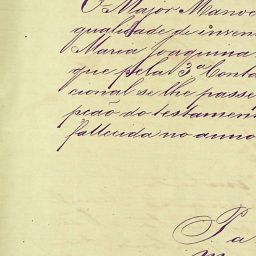 O Major Manoe
qualidade de inven
Maria Joaquina
que pela 3ª Conta
cional se lhe passe
pção do testamen
fallecida no anno